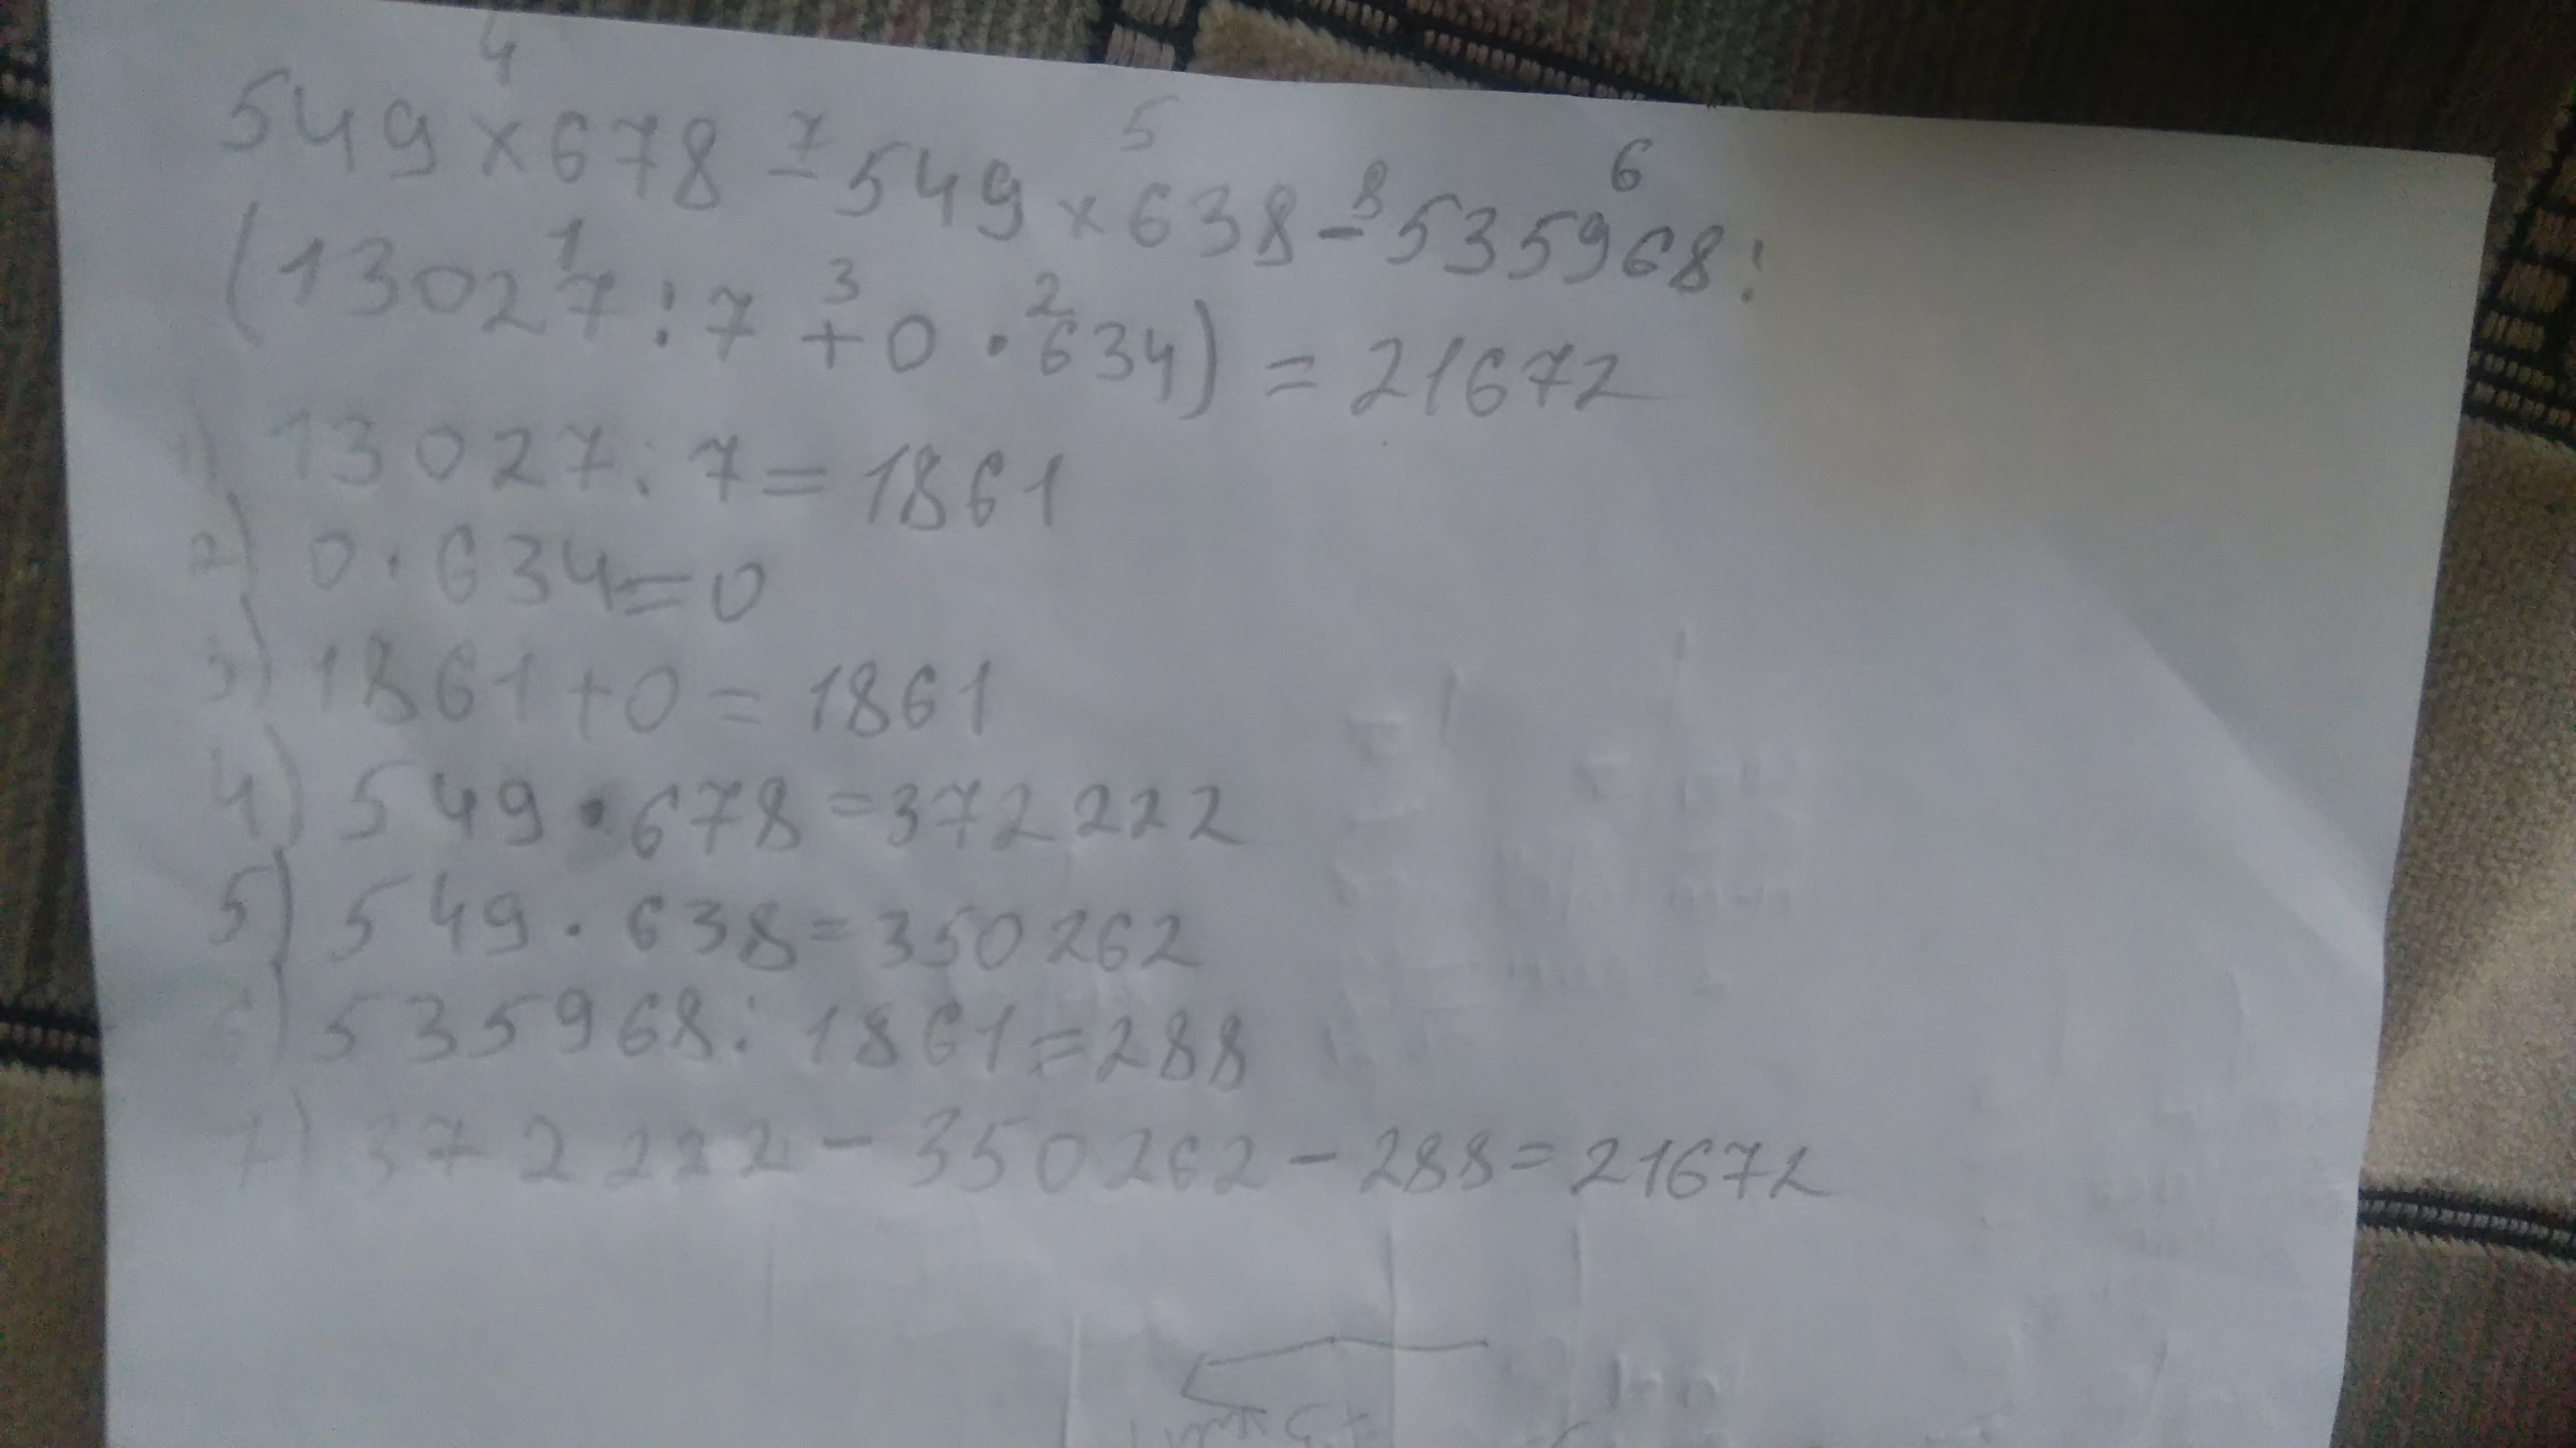 4 7 5 8 6
549 × 678 - 549 × 638 - 535968 :
1 3 2
(13027 : 7 + 0 · 634) = 21672
1) 13027 : 7 = 1861
2) 0 · 634 = 0
3) 1861 + 0 = 1861
4) 549 · 678 = 372222
5) 549 · 638 = 350262
6) 535968 : 1861 = 288
7) 372222 - 350262 - 288 = 21672